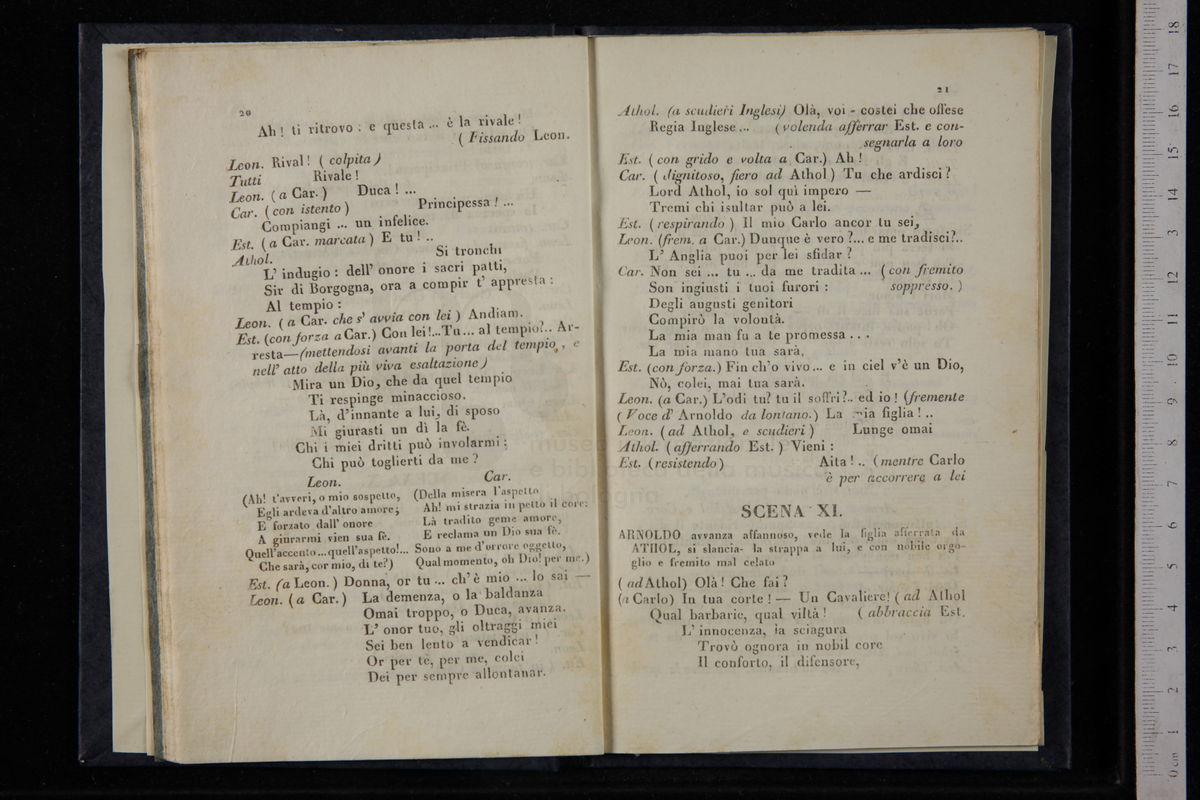 20
Ah! ti ritrovo : e questa ... è la rivale!
( Fissando Leon.
Leon. Rival! ( colpita )
Tutti Rivale!
Leon. ( a Car. ) Duca! ...
Car. ( con istento ) Principessa! ...
Compiangi ... un infelice.
Est. ( a Car. marcata ) E tu! ..
Athol. Si tronchi
L' indugio : dell' onore i sacri patti,
Sir di Borgogna, ora a compir t' appresta :
Al tempio :
Leon. ( a Car. che s' avvia con lei ) Andiam.
Est. (con forza a Car.) Con lei!...Tu... al tempio?.. Ar-
resta—(mettendosi avanti la porta del tempio, e
nell' atto della più viva esaltazione)
Mira un Dio, che da quel tempio
Ti respinge minaccioso.
Là, d'innante a lui, di sposo
Mi giurasti un dì la fè.
Chi i miei dritti può involarmi;
Chi può toglierti da me?
Leon.
(Ah! t'avveri, o mio sospetto,
Egli ardeva d'altro amore;
E forzato dall' onore
A giurarmi vien sua fè.
Quell'accento...quell'aspetto!...
Che sarà, cor mio, di te?)
Car.
(Della misera l'aspetto
Ah! mi strazia in petto il core:
Là tradito geme amore,
E reclama un Dio sua fè.
Sono a me d'orrore oggetto,
Qual momento, oh Dio! per me.)
Est. (a Leon. ) Donna, or tu ... ch'è mio ... lo sai —
Leon. ( a Car. ) La demenza, o la baldanza
Omai troppo, o Duca, avanza.
L' onor tuo, gli oltraggi miei
Sei ben lento a vendicar!
Or per te, per me, colei
Dei per sempre allontanar.
21
Athol. (a scudieri Inglesi) Olà, voi - costei che offese
Regia Inglese ... (volenda afferrar Est. e con-
segnarla a loro
Est. ( con grido e volta a Car.) Ah!
Car. ( dignitoso, fiero ad Athol ) Tu che ardisci?
Lord Athol, io sol quì impero —
Tremi chi isultar può a lei.
Est. ( respirando ) Il mio Carlo ancor tu sei,
Leon. (frem. a Car.) Dunque è vero?... e me tradisci?..
L' Anglia puoi per lei sfidar?
Car. Non sei ... tu ... da me tradita ... ( con fremito
Son ingiusti i tuoi furori : soppresso. )
Degli augusti genitori
Compirò la volontà.
La mia man fu a te promessa . . .
La mia mano tua sarà,
Est. (con forza.) Fin ch'o vivo... e in ciel v'è un Dio,
Nò, colei, mai tua sarà.
Leon. (a Car.) L'odi tu? tu il soffri?.. ed io! (fremente
( Voce d' Arnoldo da lontano. ) La mia figlia! ..
Leon. ( ad Athol, e scudieri ) Lunge omai
Athol. ( afferrando Est. ) Vieni :
Est. ( resistendo ) Aita! .. ( mentre Carlo
è per accorrere a lei
SCENA XI.
ARNOLDO avvanza affannoso, vede la figlia afferrata da
ATHOL, si slancia- la strappa a lui, e con nobile orgo-
glio e fremito mal celato
( ad Athol) Olà! Che fai?
(a Carlo) In tua corte! — Un Cavaliere! ( ad Athol
Qual barbarie, qual viltà! ( abbraccia Est.
L' innocenza, la sciagura
Trovò ognora in nobil core
Il conforto, il difensore,
museo
e biblioteca della musica
bologna
0 cm 1 2 3 4 5 6 7 8 9 10 11 12 13 14 15 16 17 18